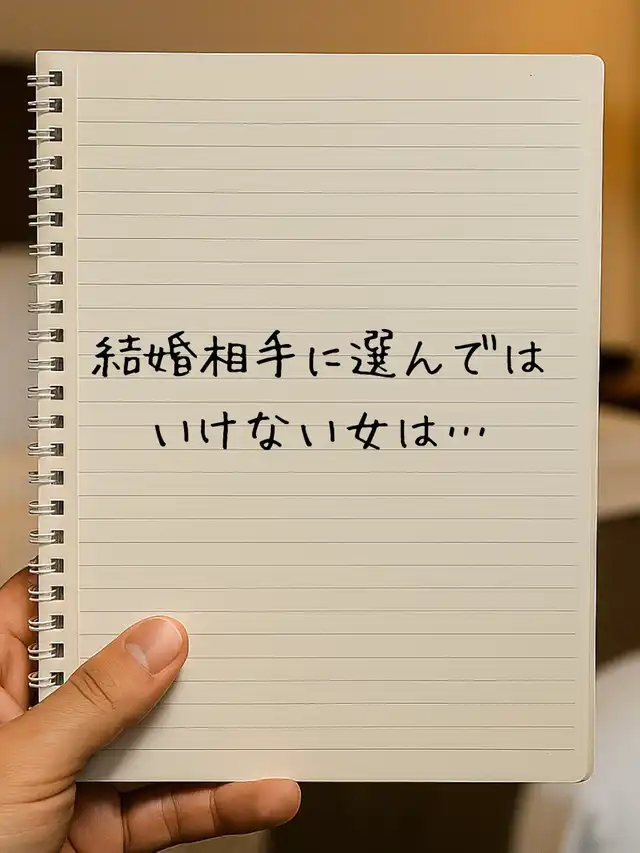 結婚相手に選んでは
いけない女は…